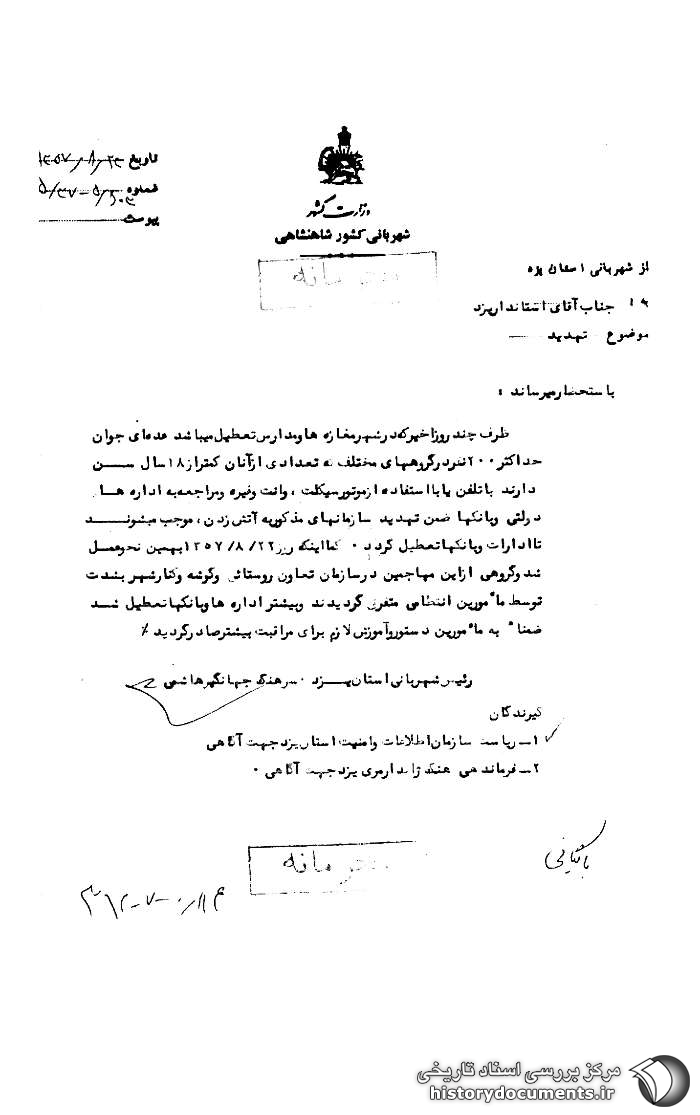 تاریخ ۱۳۵۷/۸/۲۳
شماره
پیوست
وزارت کشور
شهربانی کشور شاهنشاهی
محرمانه
از شهربانی استان یزد
به جناب آقای استاندار یزد
موضوع تهدید
باستحضار میرساند :
ظرف چند روز اخیر که در شهر مغازه ها و مدارس تعطیل میباشد عده‌ای جوان
حداکثر ۲۰۰ نفر در گروههای مختلف که تعدادی از آنان کمتر از ۱۸ سال سن
دارند باتلفن یا با استفاده از موتورسیکلت ، وانت وغیره ومراجعه به اداره ها
دولتی وبانکها ضمن تهدید سازمانهای مذکور به آتش زدن ، موجب میشوند
تا ادارات وبانکها تعطیل گردد ۰ کما اینکه روز ۱۳۵۷/۸/۲۲ بهمین نحو عمل
شد وگروهی از این مهاجمین در سازمان تعاون روستائی وگوشه وکنار شهر بشدت
توسط مأمورین انتظامی متفرق گردیدند وبیشتر اداره ها وبانکها تعطیل شد
ضمناً به مأمورین دستور وآموزش لازم برای مراقبت بیشتر صادر گردید ٪
رئیس شهربانی استان یزد ۰ سرهنگ جهانگیر هاشمی
گیرندگان
۱ــ ریاست سازمان اطلاعات وامنیت استان یزد جهت آگاهی
۲ــ فرماندهی هنگ ژاندارمری یزد جهت آگاهی ۰
بایگانی
محرمانه
مرکز بررسی اسناد تاریخی
historydocuments.ir